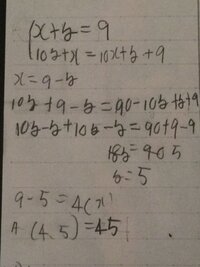 x+y=9
10y+x=10x+y+9
x=9-y
10y+9-y=90-10y+y+9
10y-y+10y-y=90+9-9
18y=90 5
y=5
9-5=4(x)
A (4.5)=45